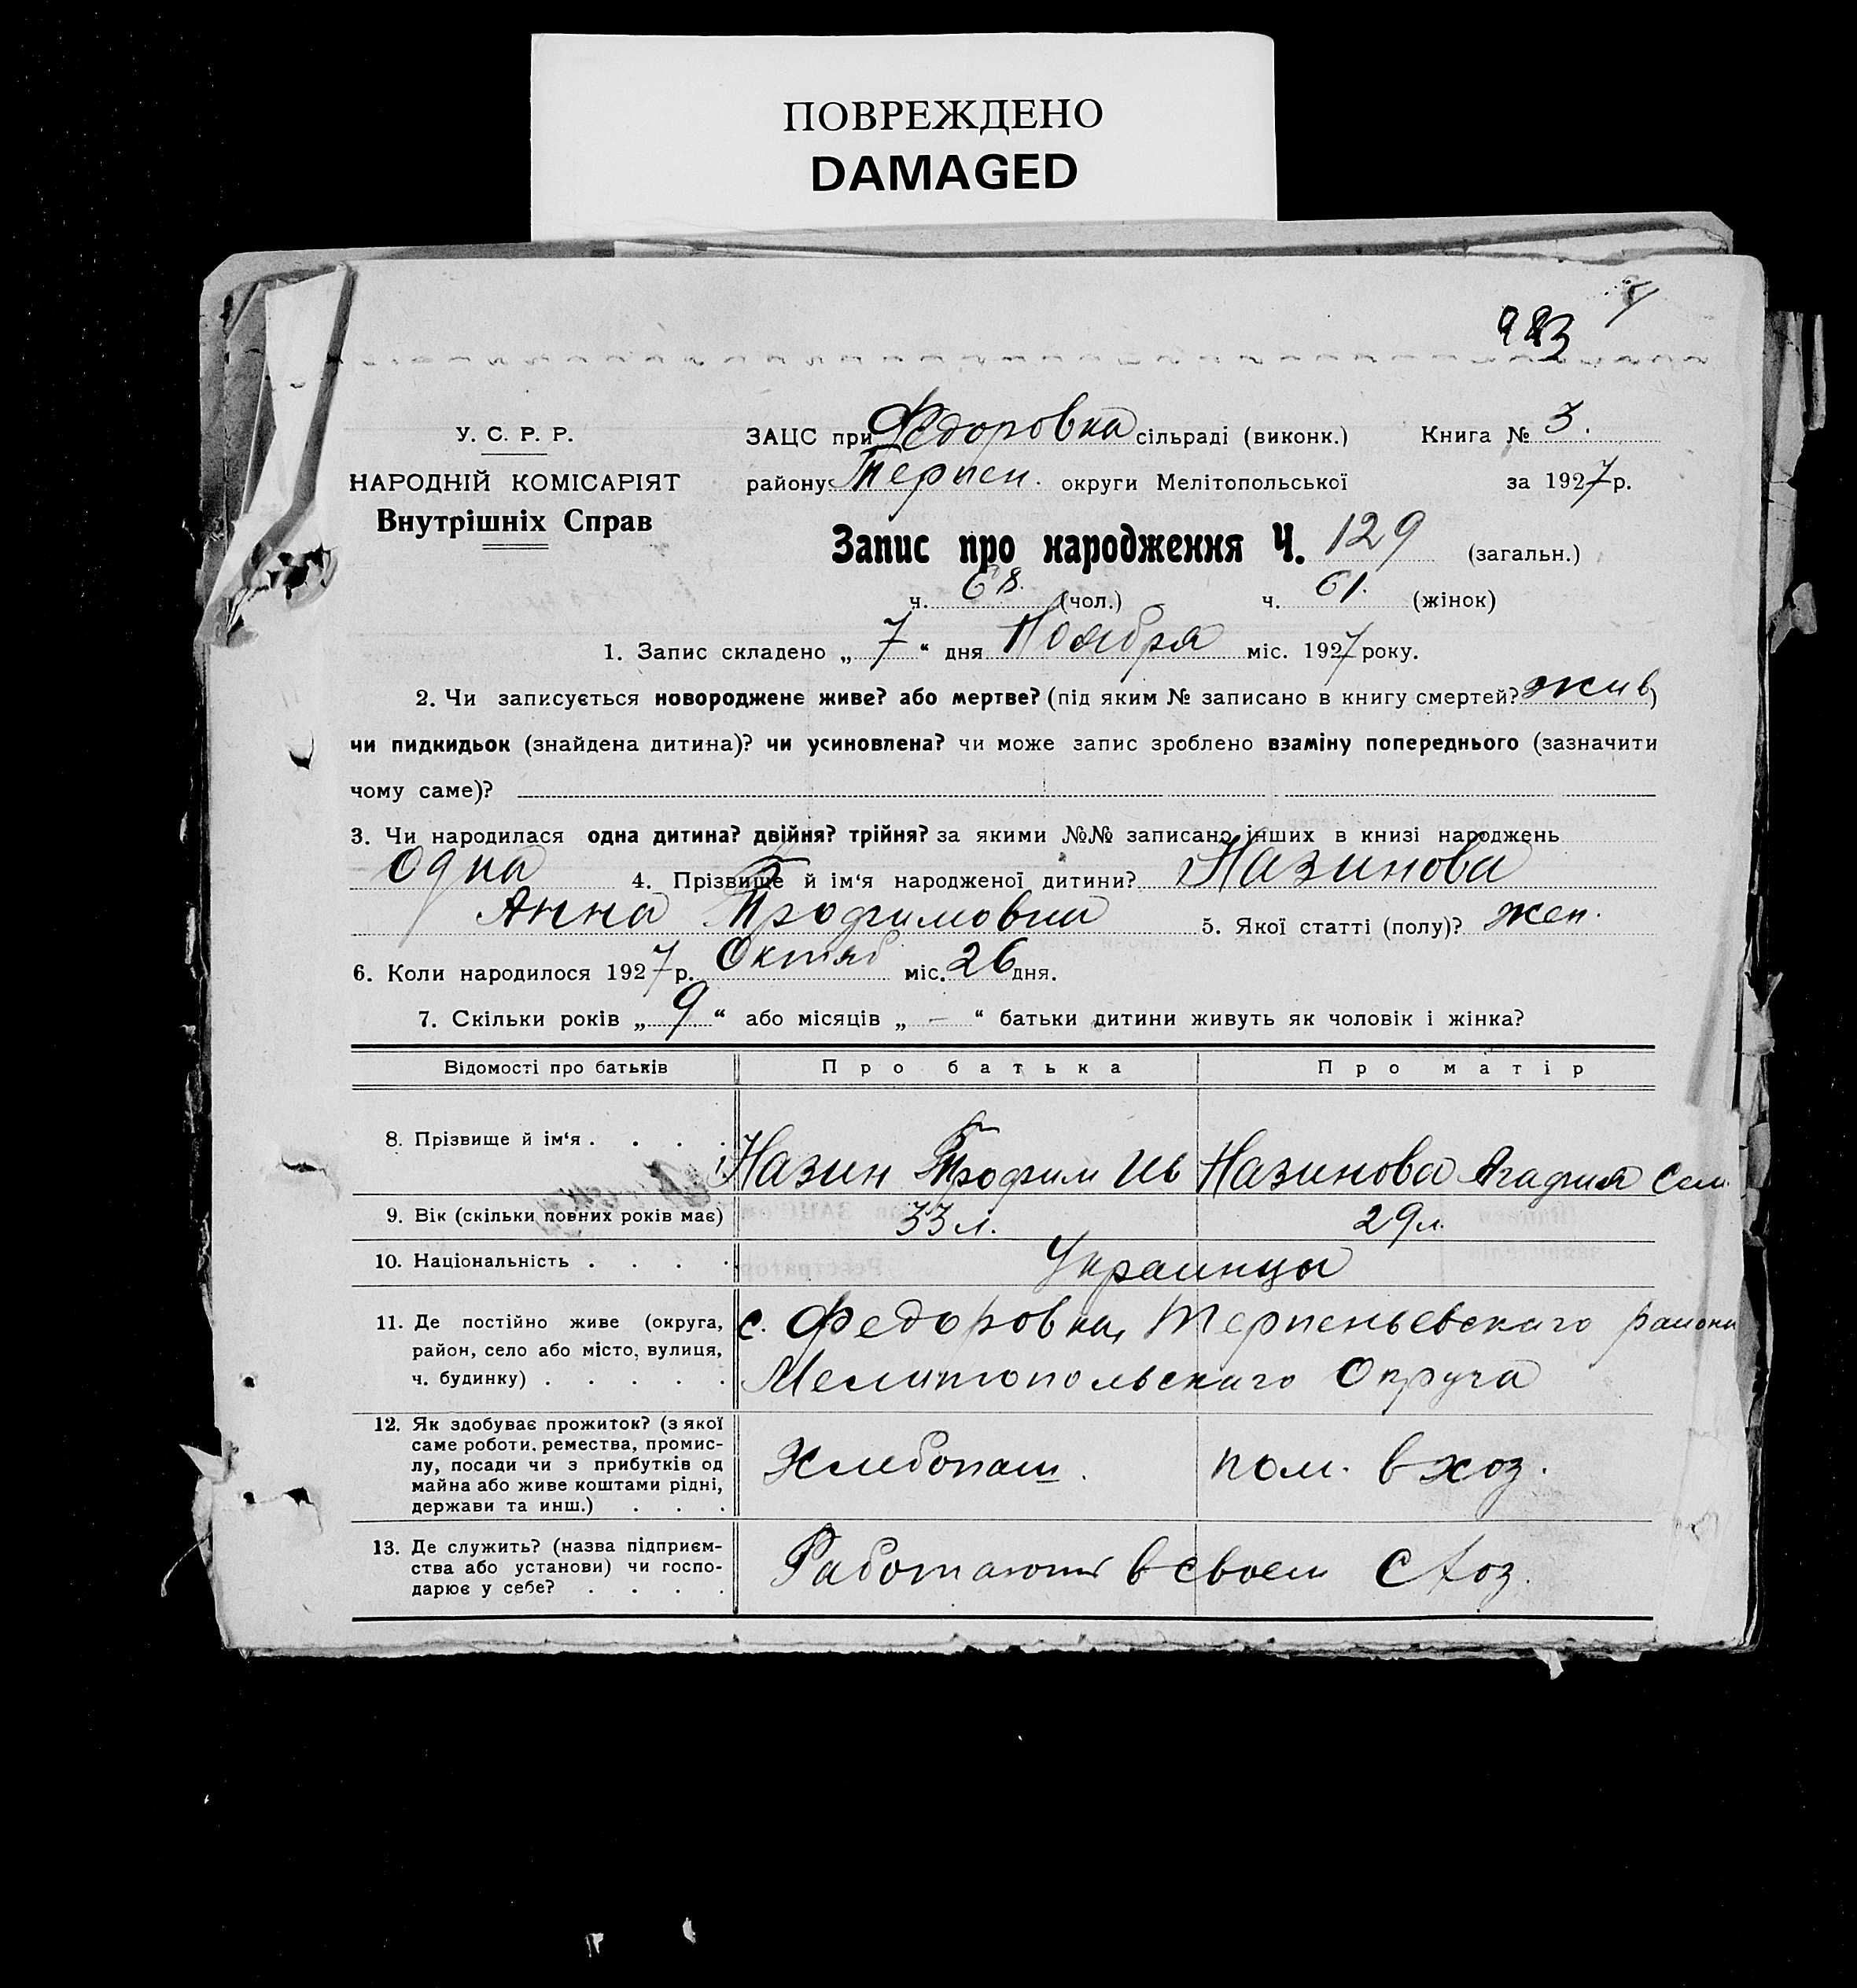 ПОВРЕЖДЕНО
DAMAGED
983
У. С. Р. Р.
НАРОДНІЙ КОМІСАРІЯТ
Внутрішніх Справ
ЗАЦС при Федоровка сільраді (виконк.) Книга № 3.
району Терпен. округи Мелітопольської за 1927 р.
Запис про народження Ч. 129 (загальн.)
ч. 68. (чол.) ч. 61. (жінок)
1. Запис складено „ 7 “ дня Ноября міс. 1927 року.
2. Чи записується новороджене живе? або мертве? (під яким № записано в книгу смертей? жив)
чи пидкидьок (знайдена дитина)? чи усиновлена? чи може запис зроблено взаміну попереднього (зазначити
чому саме)?
3. Чи народилася одна дитина? двійня? трійня? за якими №№ записано інших в книзі народжень
Одна 4. Прізвище й ім‘я народженої дитини? Назинова
Анна Трофимовна 5. Якої статті (полу)? жен.
6. Коли народилося 1927 р. Октяб міс. 26 дня.
7. Скільки років „ 9 “ або місяців „ — “ батьки дитини живуть як чоловік і жінка?
Відомості про батьків Про батька Про матір
8. Прізвище й ім‘я . . . . Назин Трофим Ив Назинова Агафия Сем.
9. Вік (скільки повних років має) 33 л. 29 л.
10. Національність . . . . Украинцы
11. Де постійно живе (округа, с. Федоровка, Терпеньевскаго района
район, село або місто, вулиця,
ч. будинку) . . . . . Мелитопольскаго Округа
12. Як здобуває прожиток? (з якої
саме роботи, ремества, промис-
лу, посади чи з прибутків од Хлебопаш. пом. в хоз.
майна або живе коштами рідні,
держави та инш.) . . .
13. Де служить? (назва підприєм-
ства або установи) чи госпо- Работают в своем с хоз.
дарює у себе? . . . .